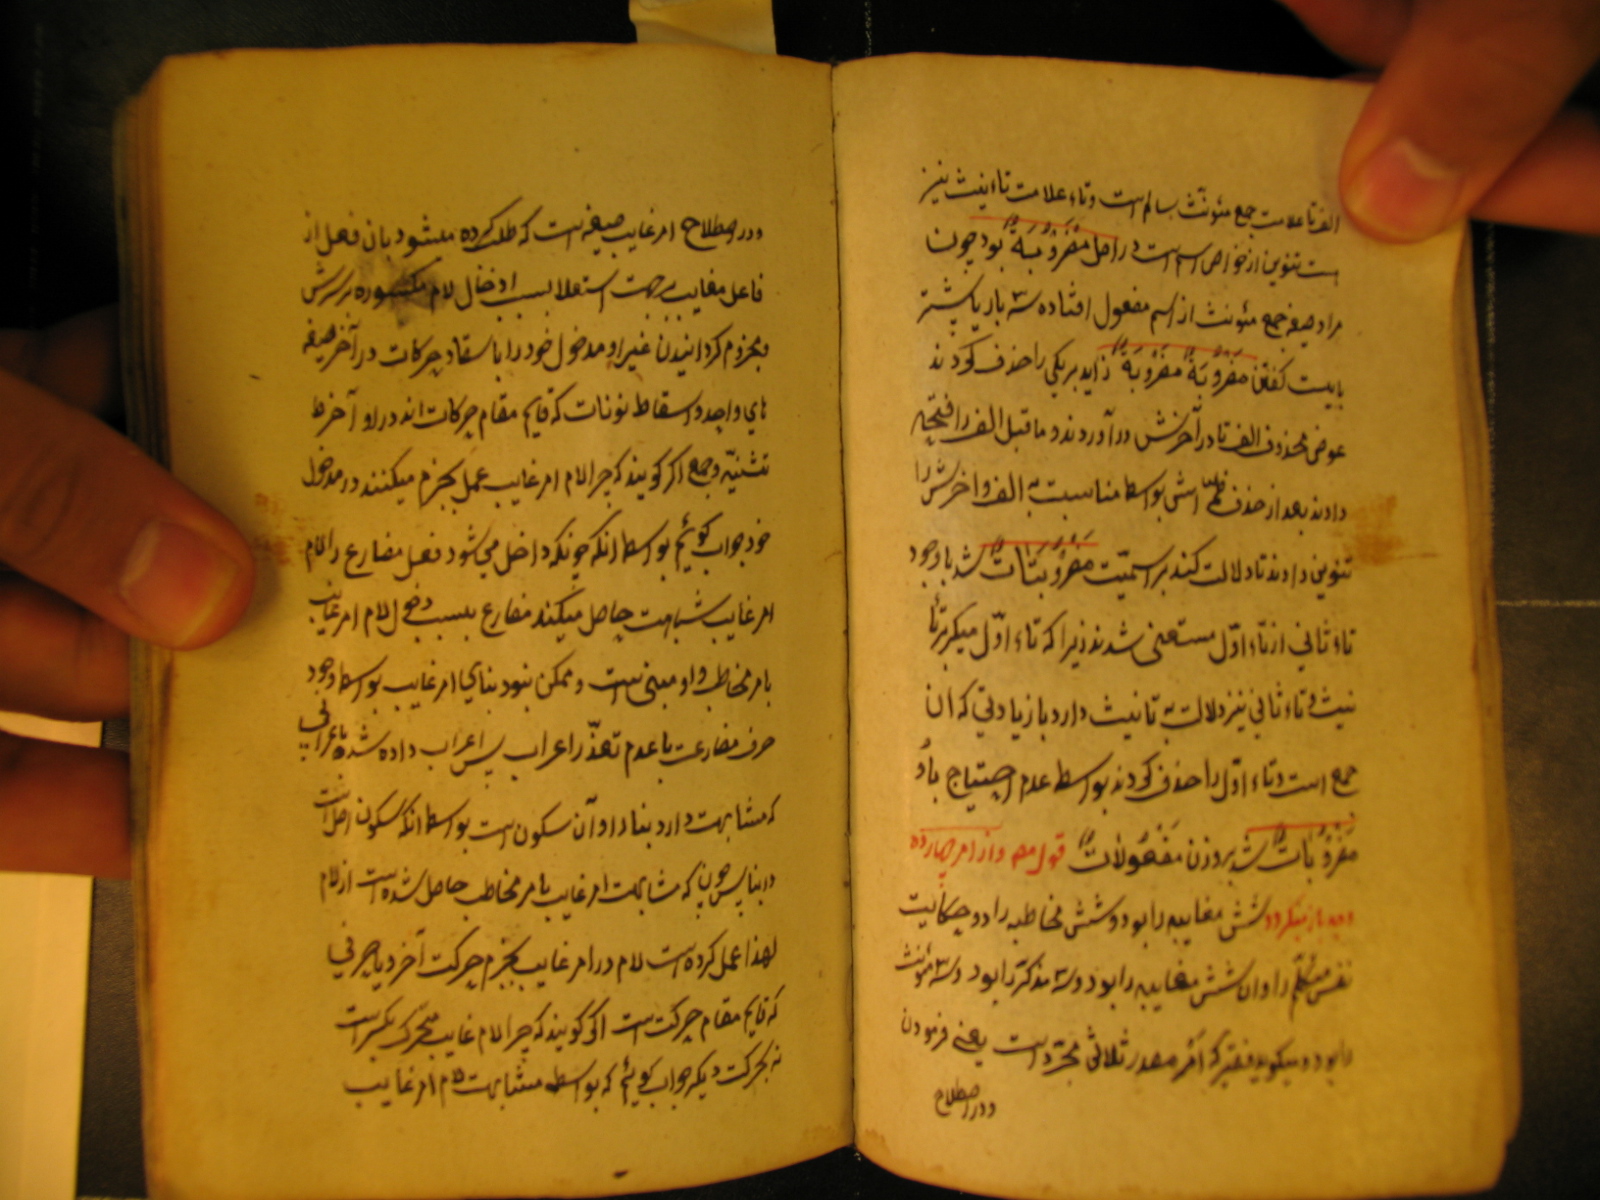 الف تا علامت جمع مئونث سالم است وتاء علامت تاءنیث نیز
است تنوین از خواص اسم است در اصل مَضْرُوْبَةٌ بود چون
مراد صیغه جمع مئونث از اسم مفعول افتاده سه بار یا پیشتر
بایست کفتن مَضْرُوْبَةٌ مَضْرُوْبَةٌ زاید بریکی را حذف کردند
عوض محذوف الف تا در آخرش در آوردند و ما قبل الف را فتحه
دادند بعد از حذف بواسطۀ مناسبت به الف و اخرش را
تنوین دادند تا دلالت کند بر اسمیّت مَضْرُوْبَتَاتٌ شد با وجود
تاء ثانی از تاء اوّل مستغنی شدند زیرا که تاء اوّل میکرد بر تأ
نیث و تاء ثانی نیز دلالت به تانیث دارد با زیادتی که ان
جمع است و تاء اوّل را حذف کردند بواسطۀ عدم احتیاج باو
مَضْرُوْبَاتٌ شد بر وزن مَفْعُوْلَاتٌ قول مص و از امر چهارده
وجه باز میکردد شش مغایبه را بود و شش مخاطبه را دو حکایت
نفس متکلّم را و ان شش مغایبه را بود و سه مذکّر را بود و سه مؤنث
را بود و میکوید فقیر که امر مصدر ثلاثی مجرّد است یعنی فرمودن
ودر اصطلاح
ودر اصطلاح امر غایب صیغه است که طلب کرده میشود بان فعل از
فاعل مغایب بر جهت استعلا بسبب ادخال لام مکسوره بر سرش
ومجزوم کردانیدن غیر او مدخول خود را باسقاط حرکات در آخر صیغه
های واحد و اسقاط نونات که قایم مقام حرکات اند در آخر
تثنیّه وجمع اکر کویند که چرا لام امر غایب عمل بجزم میکنند در مدخول
خود جواب کوئیم بواسطۀ انکه چونکه داخل می شود فعل مضارع را لام
امر غایب شباهت حاصل میکند مضارع بسبب دخول لام امر غایب
بامر مخاطب و او مبنی است و ممکن نبود بنای امر غایب بواسطۀ وجود
حرف مضارعت با عدم تعذّر اعراب پس اعراب داده شده باعرابی
که مشابهت دارد بنا را و آن سکون است بواسطۀ انکه سکون اصل است
در بنا پس چون که مشابهت امر غایب بامر مخاطب حاصل شده است از لام
لهذا عمل کرده است لام در امر غایب بجزم حرکت آخر و یا حرفی
که قایم مقام حرکت است اکر کویند که چرا لام غایب متحرک بکسر است
نه بحرکت دیکر جواب کوئیم که بواسطه مشابهت لام امر غایب